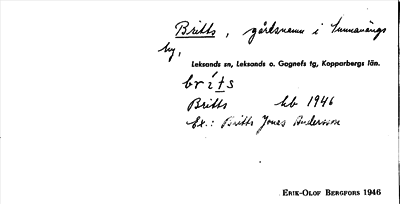 Britts, gårdsnamn i Sunnanängs
by,
Leksands sn, Leksands o. Gagnefs tg, Kopparbergs län.
bríts
Britts hb 1946
Ex.: Britts Jones Andersson
ERIK-OLOF BERGFORS 1946